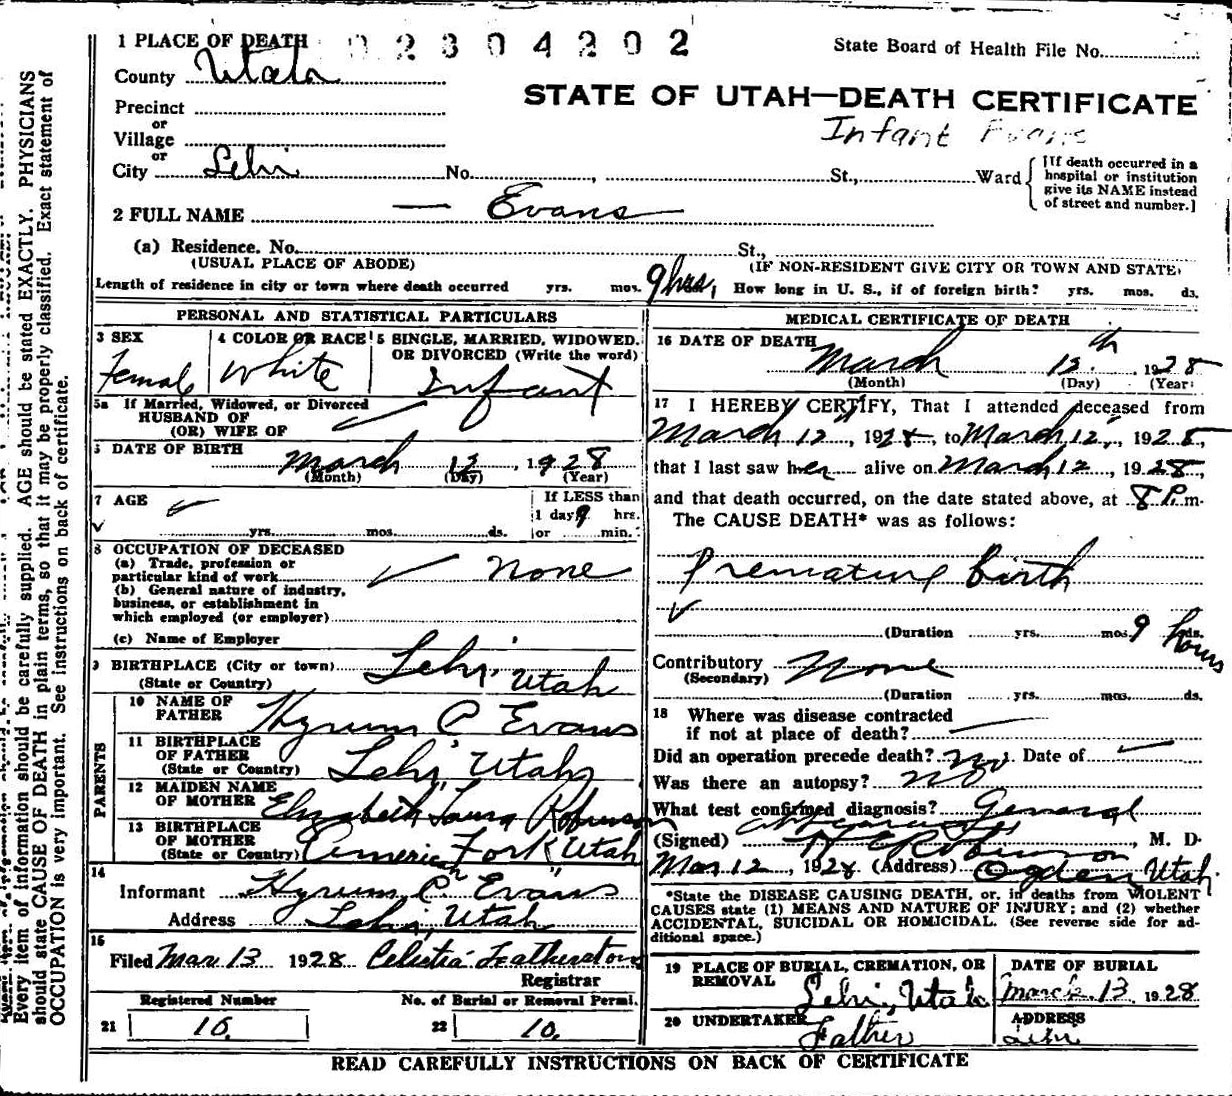 1 PLACE OF DEATH 02304202 State Board of Health File No.
County Utah
STATE OF UTAH—DEATH CERTIFICATE
Precinct
or
Infant Evans
Village
or
City Lehi No. , St., Ward
[If death occurred in a
hospital or institution
give its NAME instead
of street and number.]
2 FULL NAME — Evans
(a) Residence. No. St.,
(USUAL PLACE OF ABODE) (IF NON-RESIDENT GIVE CITY OR TOWN AND STATE)
Length of residence in city or town where death occurred yrs. mos. 9 hrs. How long in U. S., if of foreign birth? yrs. mos. ds.
PERSONAL AND STATISTICAL PARTICULARS
3 SEX
Female
4 COLOR OR RACE
White
5 SINGLE, MARRIED, WIDOWED,
OR DIVORCED (Write the word)
Infant
5a If Married, Widowed, or Divorced
HUSBAND OF
(OR) WIFE OF
6 DATE OF BIRTH
March 12, 1928
(Month) (Day) (Year)
7 AGE
If LESS than
1 day 9 hrs.
yrs. mos. ds. or min.
8 OCCUPATION OF DECEASED
(a) Trade, profession or
particular kind of work None
(b) General nature of industry,
business, or establishment in
which employed (or employer)
(c) Name of Employer
9 BIRTHPLACE (City or town) Lehi,
(State or Country) Utah
PARENTS
10 NAME OF
FATHER Hyrum C. Evans
11 BIRTHPLACE
OF FATHER
(State or Country) Lehi, Utah
12 MAIDEN NAME
OF MOTHER Elizabeth Laura Robinson
13 BIRTHPLACE
OF MOTHER
(State or Country) American Fork Utah
14
Informant Hyrum C. Evans
Address Lehi, Utah
15
Filed Mar 13 1928 Celestia Featherstone
Registrar
Registered Number No. of Burial or Removal Permi.
21 10. 22 10.
MEDICAL CERTIFICATE OF DEATH
16 DATE OF DEATH
March 12th, 1928
(Month) (Day) (Year)
17 I HEREBY CERTIFY, That I attended deceased from
March 12, 1928, to March 12, 1928,
that I last saw her alive on March 12, 1928,
and that death occurred, on the date stated above, at 8 P. m.
The CAUSE DEATH* was as follows:
Premature birth
(Duration yrs. mos. 9 hours ds.
Contributory None
(Secondary)
(Duration yrs. mos. ds.
18 Where was disease contracted
if not at place of death?
Did an operation precede death? No. Date of
Was there an autopsy? no
What test confirmed diagnosis? General
appearance
(Signed) Robinson, M. D.
Mar. 12, 1928. (Address) Ogden, Utah.
*State the DISEASE CAUSING DEATH, or, in deaths from VIOLENT
CAUSES state (1) MEANS AND NATURE OF INJURY; and (2) whether
ACCIDENTAL, SUICIDAL OR HOMICIDAL. (See reverse side for ad-
ditional space.)
19 PLACE OF BURIAL, CREMATION, OR
REMOVAL
Lehi, Utah
DATE OF BURIAL
March 13, 1928
20 UNDERTAKER
Father
ADDRESS
Lehi
READ CAREFULLY INSTRUCTIONS ON BACK OF CERTIFICATE
Every item of information should be carefully supplied. AGE should be stated EXACTLY. PHYSICIANS
should state CAUSE OF DEATH in plain terms, so that it may be properly classified. Exact statement of
OCCUPATION is very important. See instructions on back of certificate.